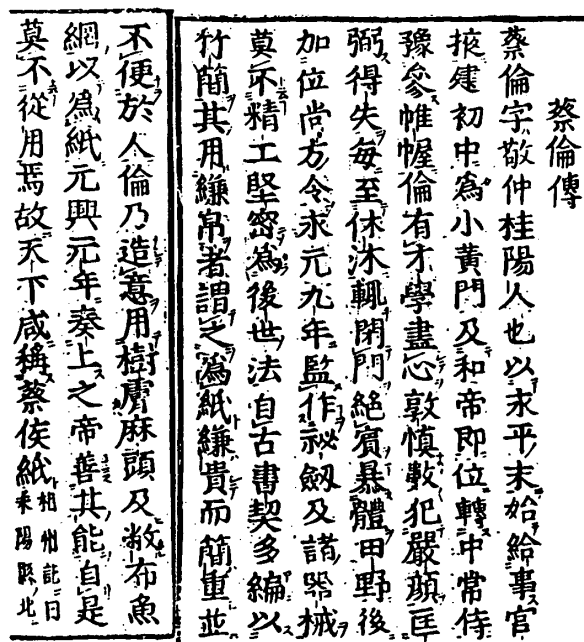 蔡倫傳
蔡倫字敬仲桂陽人也以永平末始給事官
掖建初中為小黃門及和帝即位轉中常侍
豫參帷幄倫有才學盡心敦慎數犯嚴顏匡
弼得失每至休沐輒閉門絕賓暴體田野後
加位尚方令永元九年監作祕劔及諸器械
莫不精工堅密為後世法自古書契多編以
竹簡其用縑帛者謂之為紙縑貴而簡重並
不便於人倫乃造意用樹膚麻頭及敝布魚
網以為紙元興元年奏上之帝善其能自是
莫不從用焉故天下咸稱蔡侯紙
相州記曰
耒陽縣北